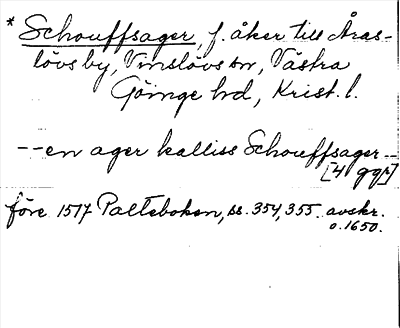 * Schouffsager, f. åker till Åras-
lövs by, Vinslövs sn, Västra
Göinge hd, Krist. l.
--en ager kalliss Schouffsager--
[4 ggr]
före 1517 Palteboken, ss. 354, 355. avskr.
o. 1650.